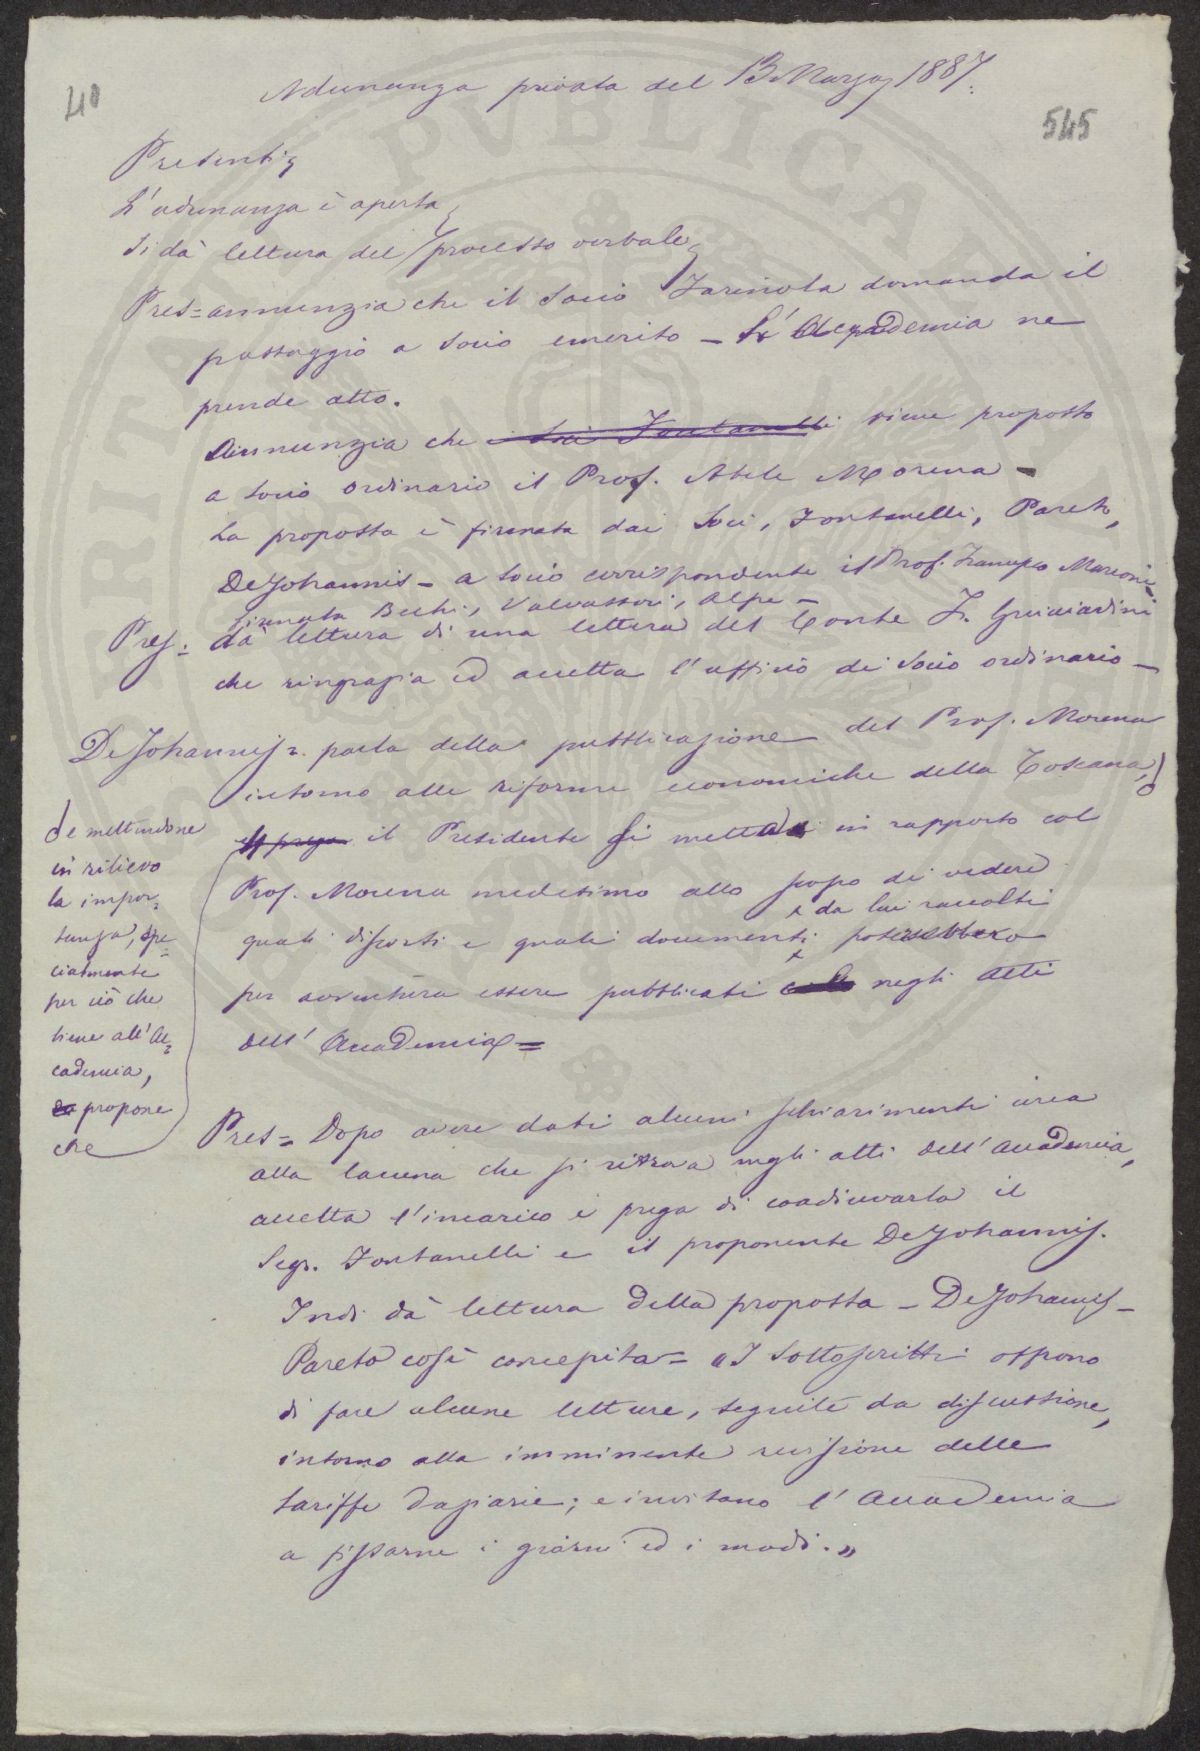 40
Adunanza privata del 13 Marzo 1887.
545
Presenti
L'adunanza è aperta
Si dà lettura del processo verbale
Pres= annunzia che il Socio Farinola domanda il
passaggio a Socio emerito – L'Accademia ne
prende atto.
Annunzia che i Soci Fontanelli viene proposto
a Socio ordinario il Prof. Abele Morena –
La proposta è firmata dai Soci, Fontanelli, Pareto,
DeJohannis – a Socio corrispondente il Prof. Marconi
firmata Bechi, Valvassori, Alpe –
Pres= dà lettura di una lettera del Conte F. Guicciardini
che ringrazia ed accetta l'ufficio di Socio ordinario –
DeJohannis= parla della pubblicazione del Prof. Morena
intorno alle riforme economiche della Toscana,
e mettendone
in rilievo
la impor=
tanza, spe=
cialmente
per ciò che
tiene all'Ac=
cademia,
propone
che
il Presidente si metta in rapporto col
Prof. Morena medesimo allo scopo di vedere
e da lui raccolti
quali discorsi e quali documenti potrebbero
per avventura essere pubblicati negli Atti
dell'Accademia=
Pres= Dopo avere dati alcuni schiarimenti circa
alla lacuna che si ritrova negli atti dell'Accademia,
accetta l'incarico e prega di coadiuvarlo il
Segr. Fontanelli e il proponente DeJohannis.
Indi dà lettura della proposta – DeJohannis –
Pareto così concepita= "I Sottoscritti offrono
di fare alcune letture, seguite da discussione,
intorno alla imminente revisione delle
tariffe daziarie; e invitano l'Accademia
a fissarne i giorni ed i modi."